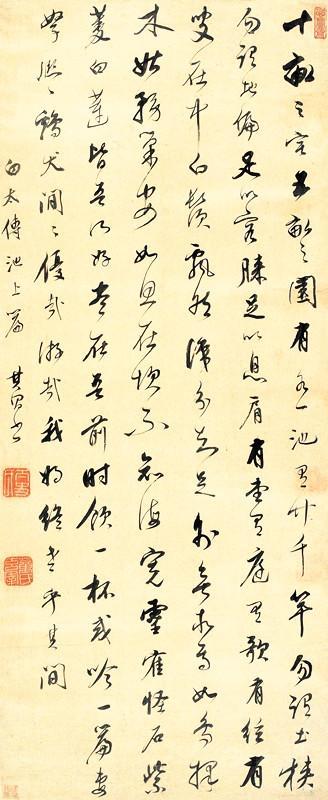 十畝之宅五畝之園有水一池有竹千竿勿謂土狹
勿謂地偏足以容膝足以息肩有堂有庭有歌有絃有
叟在中白鬚飄然識分知足外無求焉如鳥擇
木姑務巢安如龜在坎不知海寬靈隺怪石紫
菱白蓮皆吾所好盡在吾前時飲一杯或吟一篇妻
孥熙〻鷄犬閒〻優哉游哉我將終老乎其間
白太傅池上篇 其昌書